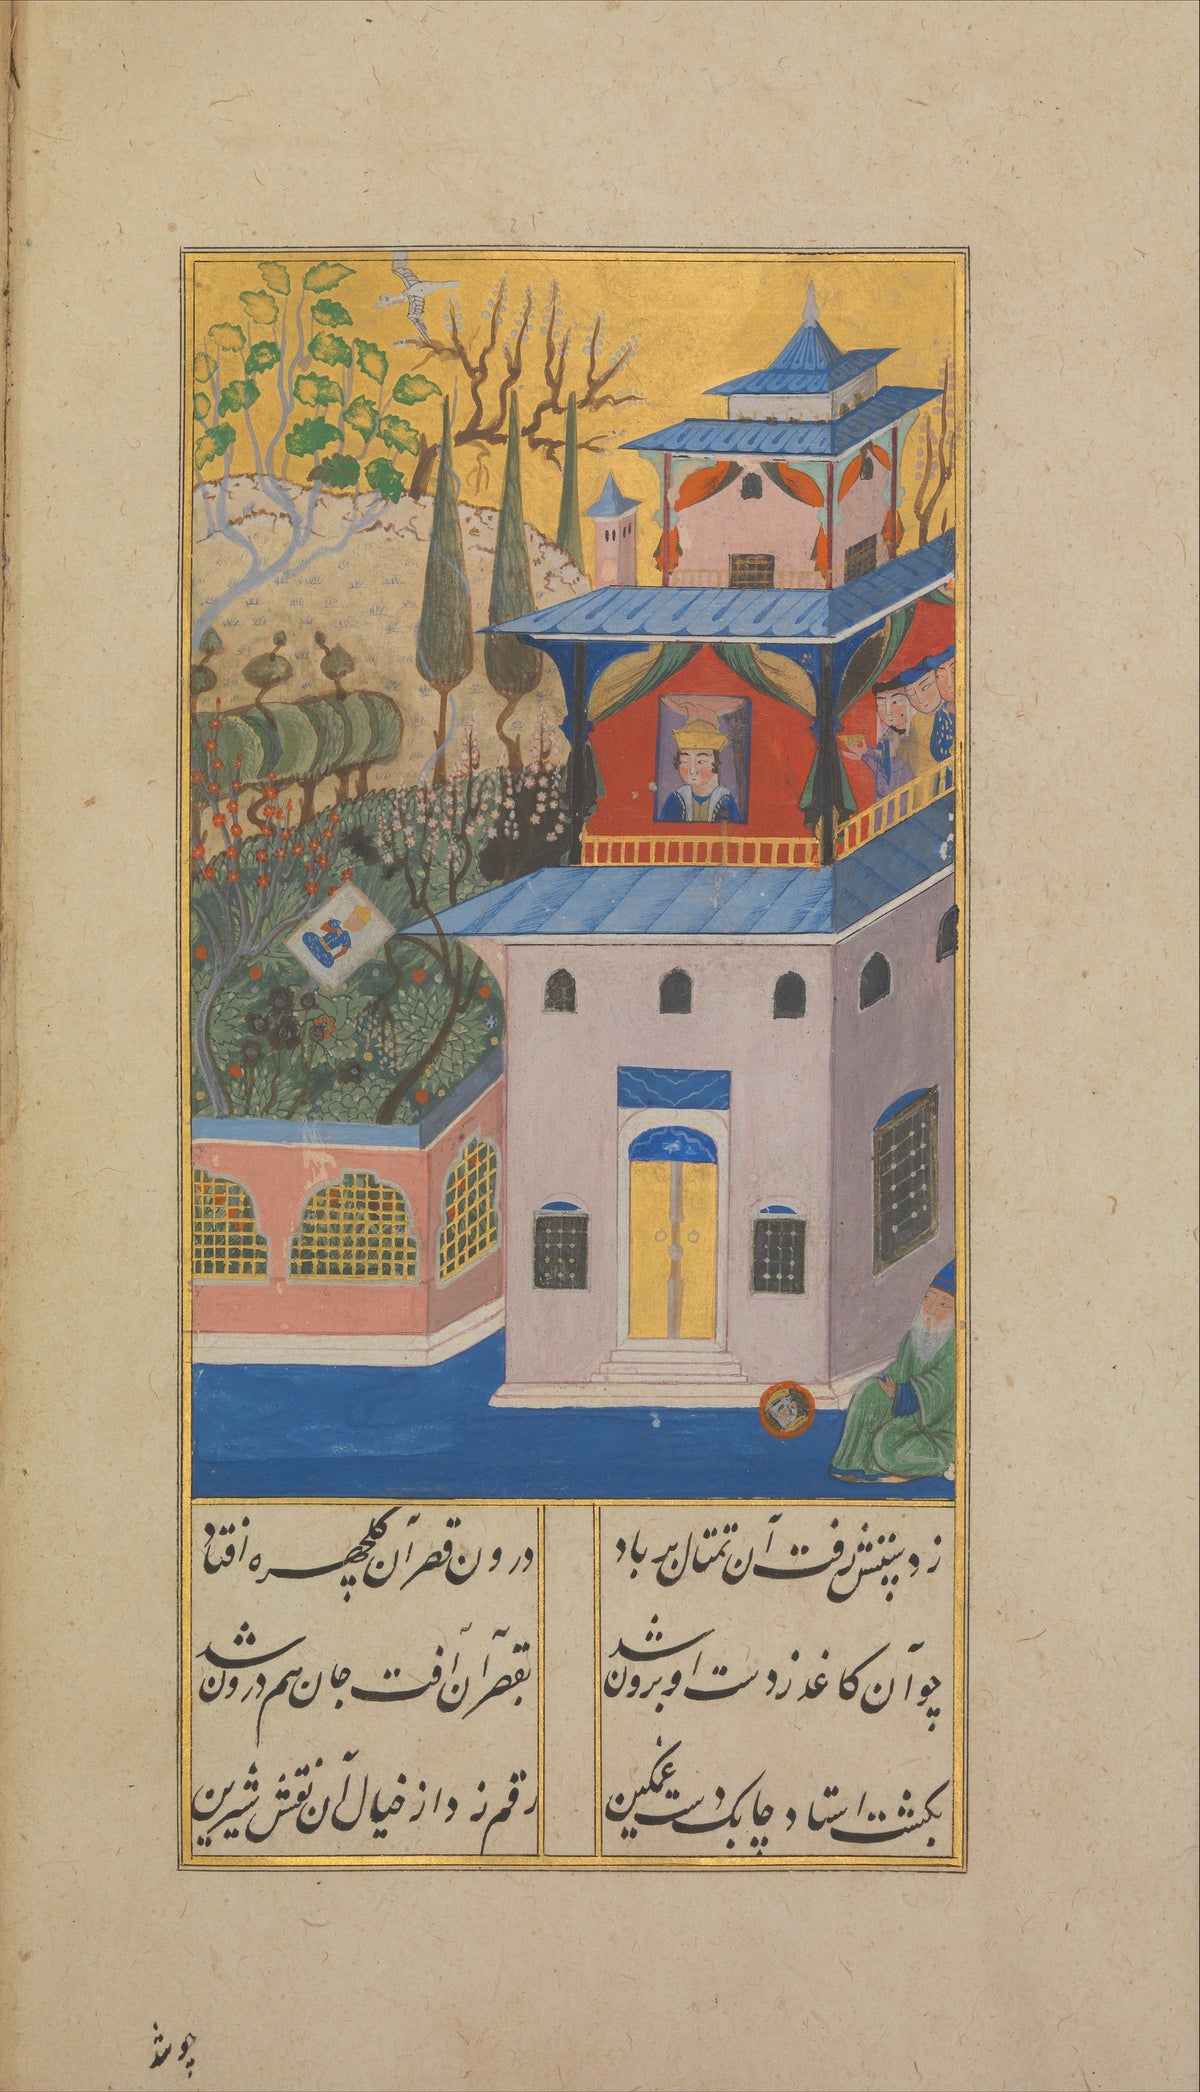 ز دستش رفت آن تمثال بر باد
درون قصر آن گلچهره افتاد
چو آن کاغذ ز دست او برون شد
بقصر آن آفت جان هم درون شد
بگشت استاد چابک دست غمگین
رقم زد از خیال آن نقش شیرین
چو شد